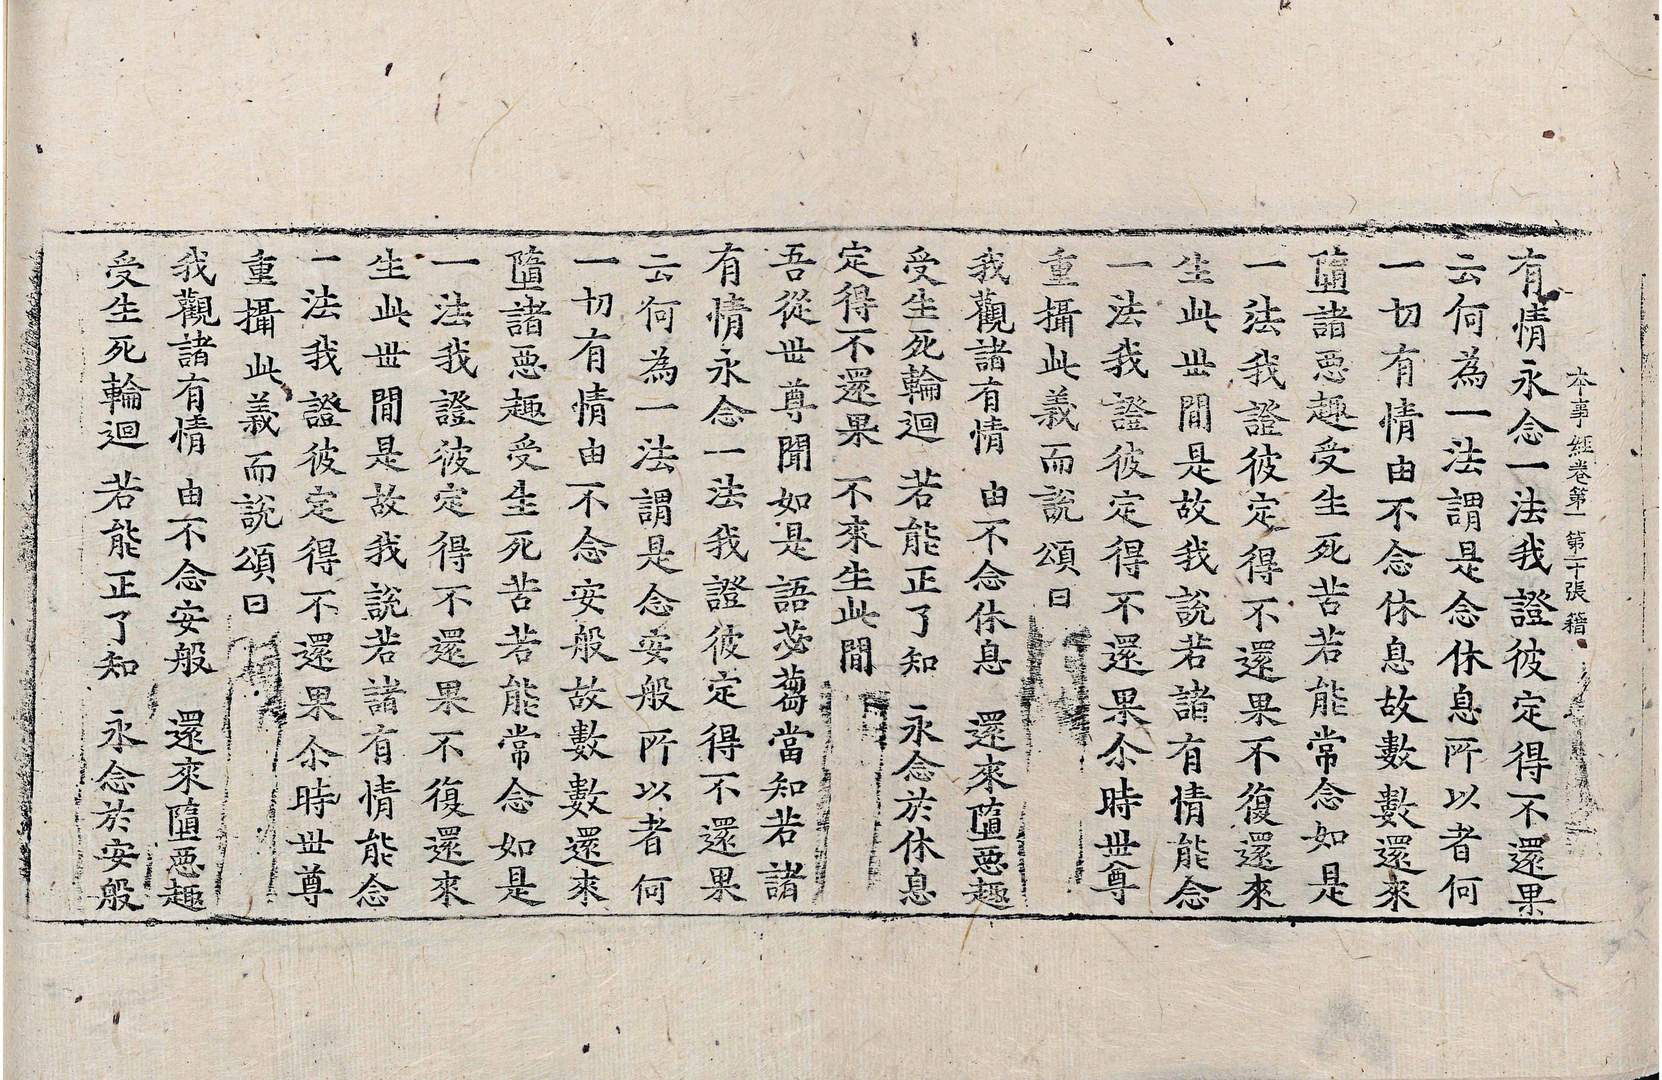 本事經卷第一　第二十張　稽
有情永念一法我證彼定得不還果
云何為一法謂是念休息所以者何
一切有情由不念休息故數數還來
墮諸惡趣受生死苦若能常念如是
一法我證彼定得不還果不復還來
生此世閒是故我說若諸有情能念
一法我證彼定得不還果尒時世尊
重攝此義而說頌曰
我觀諸有情　由不念休息　還來墮惡趣
受生死輪迴　若能正了知　永念於休息
定得不還果　不來生此閒
吾從世尊聞如是語苾芻當知若諸
有情永念一法我證彼定得不還果
云何為一法謂是念安般所以者何
一切有情由不念安般故數數還來
墮諸惡趣受生死苦若能常念如是
一法我證彼定得不還果不復還來
生此世閒是故我說若諸有情能念
一法我證彼定得不還果尒時世尊
重攝此義而說頌曰
我觀諸有情　由不念安般　還來墮惡趣
受生死輪迴　若能正了知　永念於安般